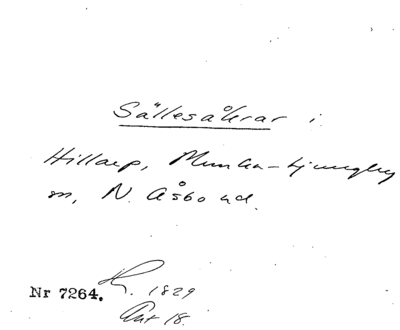 Sällesåkrar i
Hillarp, Munka-Ljungby
sn, N. Åsbo hd.
Nr 7264. 1829
Akt 18.